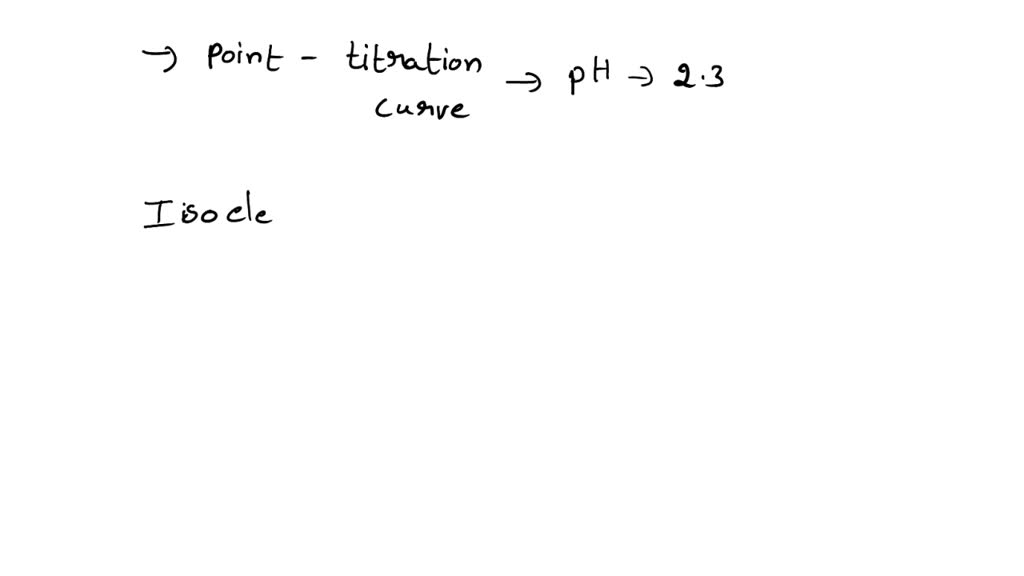 → Point - titration → pH → 2.3
curve
Isoele